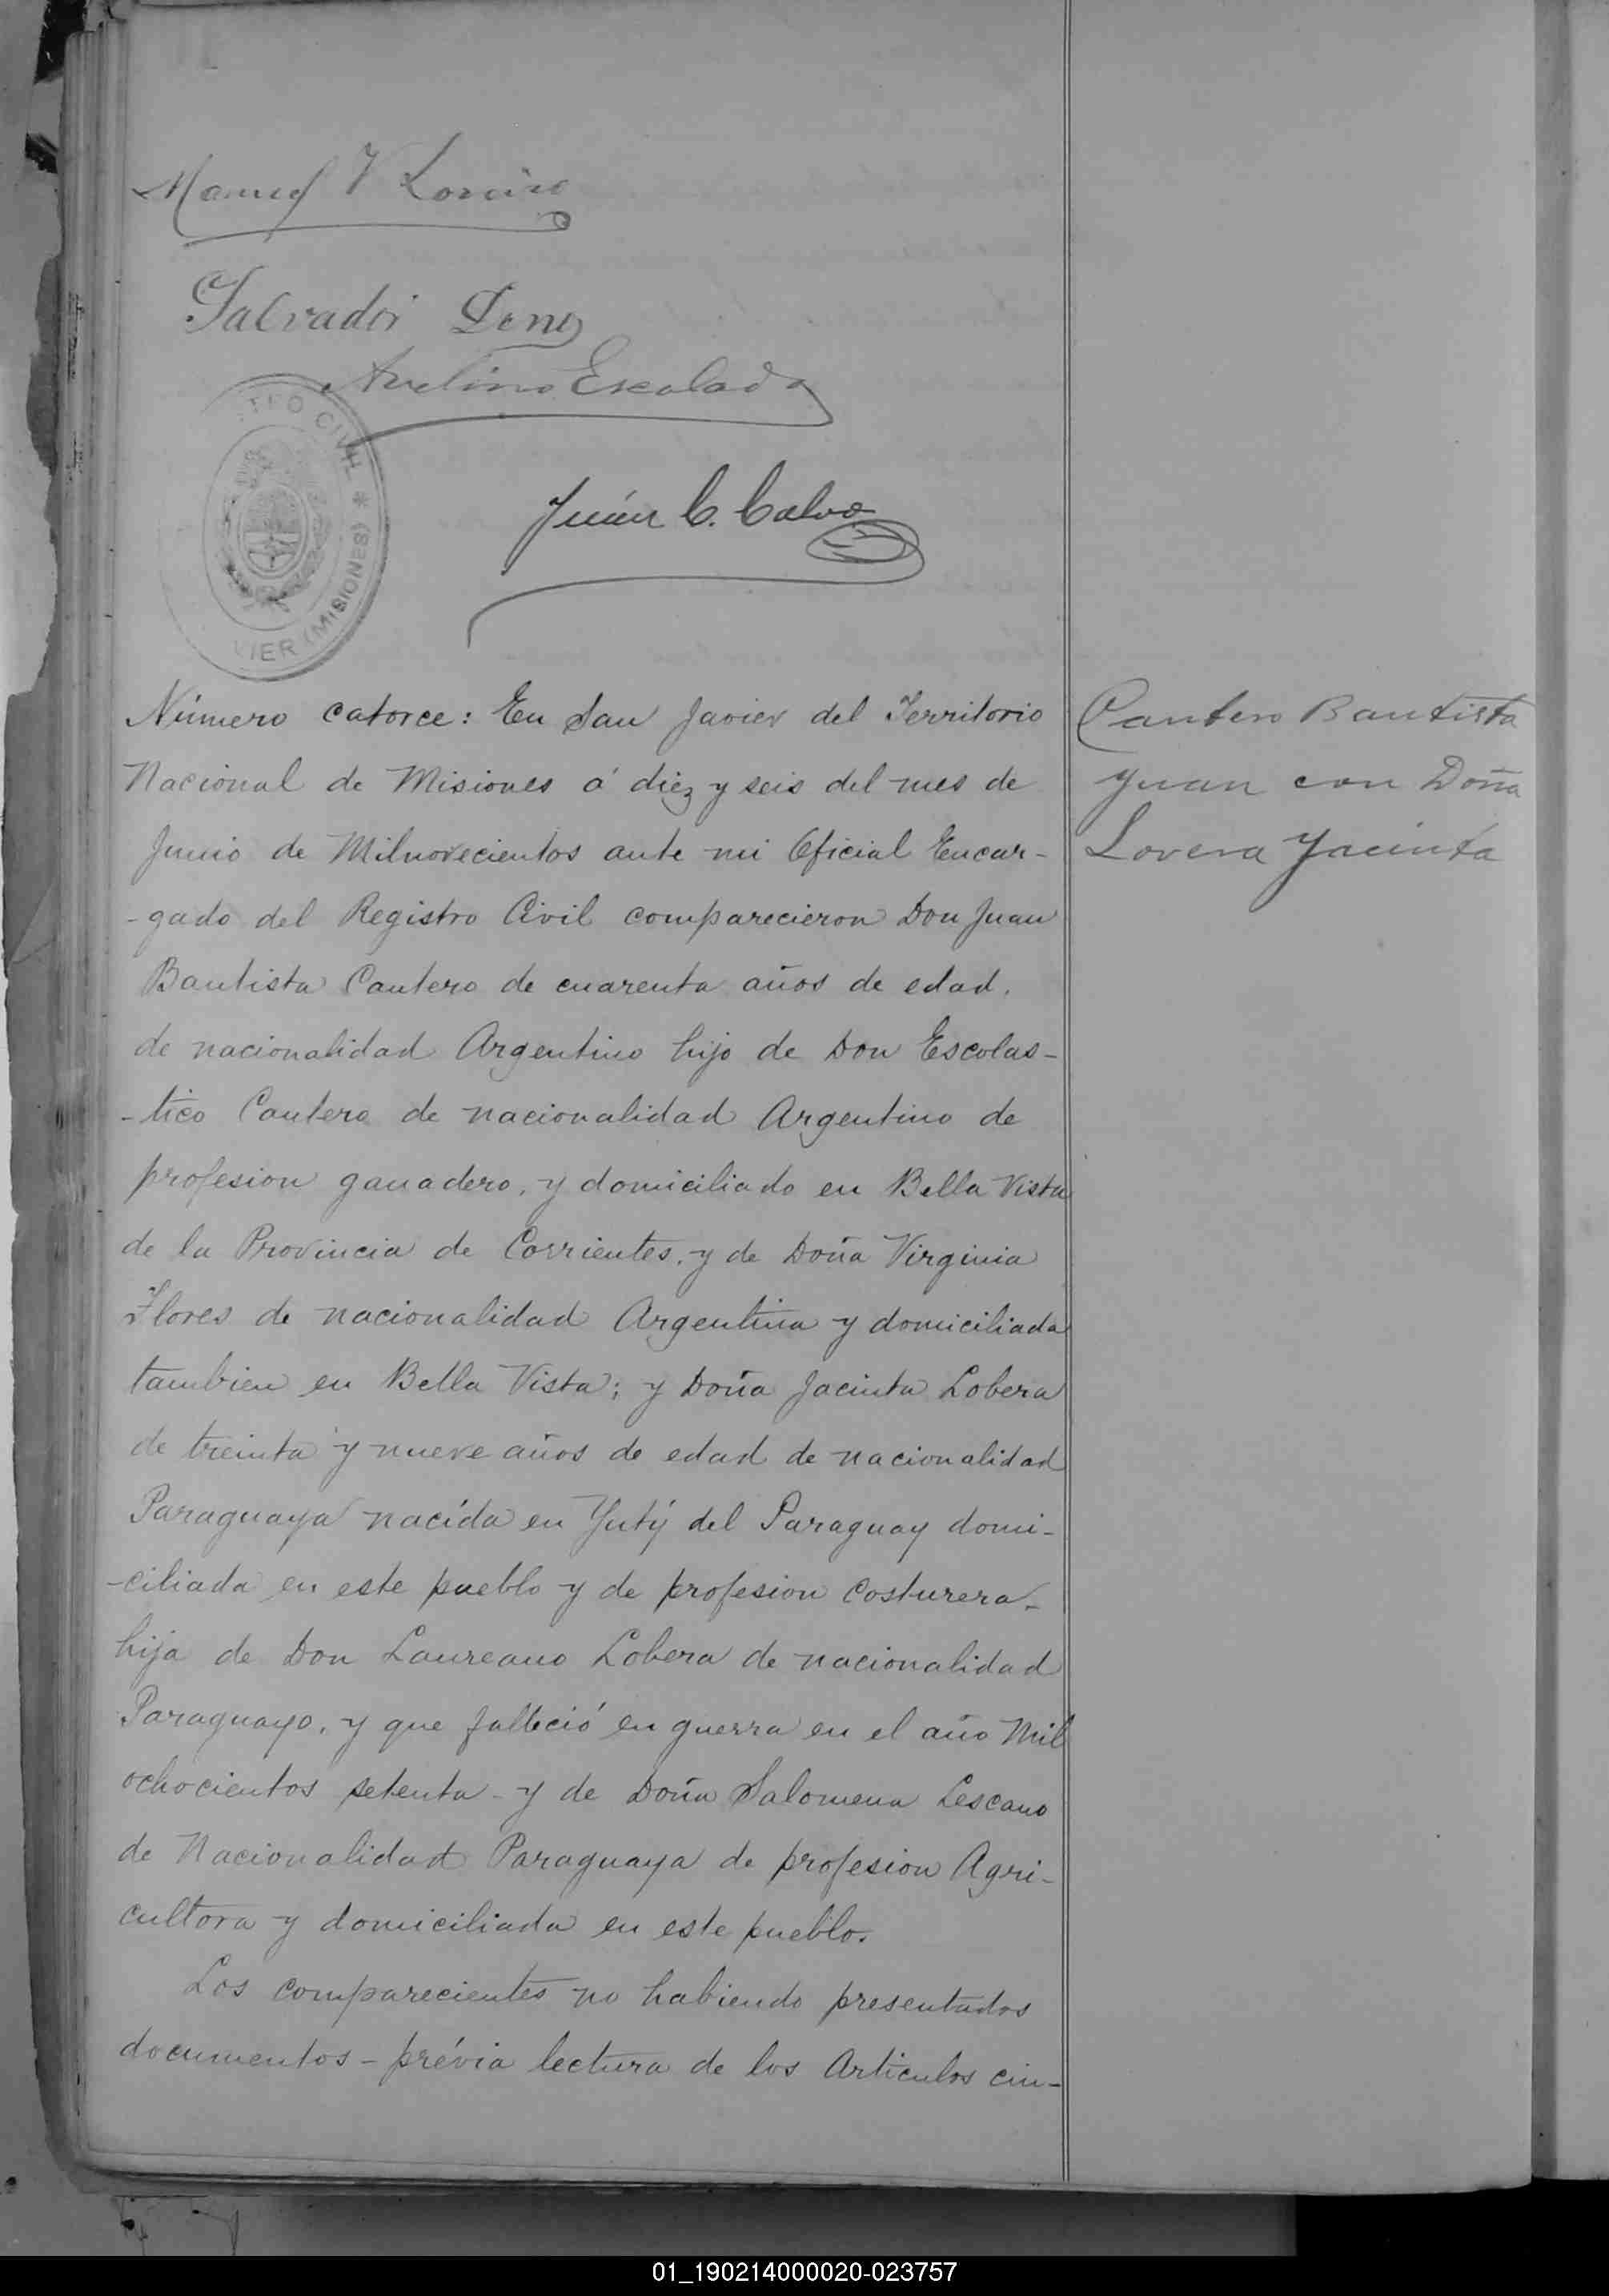 Manuel V Loreiro
Salvador
Avelino Escalada
TRO CIVIL * 
VIER (MISIONES)
Juán C. Calvo
Número catorce: En San Javier del Territorio
Nacional de Misiones á diez y seis del mes de
Junio de Milnovecientos ante mi Oficial Encar-
-gado del Registro Civil comparecieron Don Juan
Bautista Cantero de cuarenta años de edad.
de nacionalidad Argentino hijo de Don Escolas-
-tico Cantero de nacionalidad Argentino de
profesion ganadero, y domiciliado en Bella Vista
de la Provincia de Corrientes, y de Doña Virginia
Flores de nacionalidad Argentina y domiciliada
tambien en Bella Vista; y Doña Jacinta Lobera
de treinta y nueve años de edad de nacionalidad
Paraguaya nacída en Yutý del Paraguay domi-
-ciliada en este pueblo y de profesion costurera-
hija de Don Laureano Lobera de nacionalidad
Paraguayo, y que falleció en guerra en el año Mil
ochocientos setenta - y de Doña Salomena Lescano
de Nacionalidad Paraguaya de profesion Agri-
cultora y domiciliada en este pueblo.
Los comparecientes no habiendo presentados
documentos - prévia lectura de los Articulos cin-
Cantero Bautista
Juan con Doña
Lovera Jacinta
01_190214000020-023757